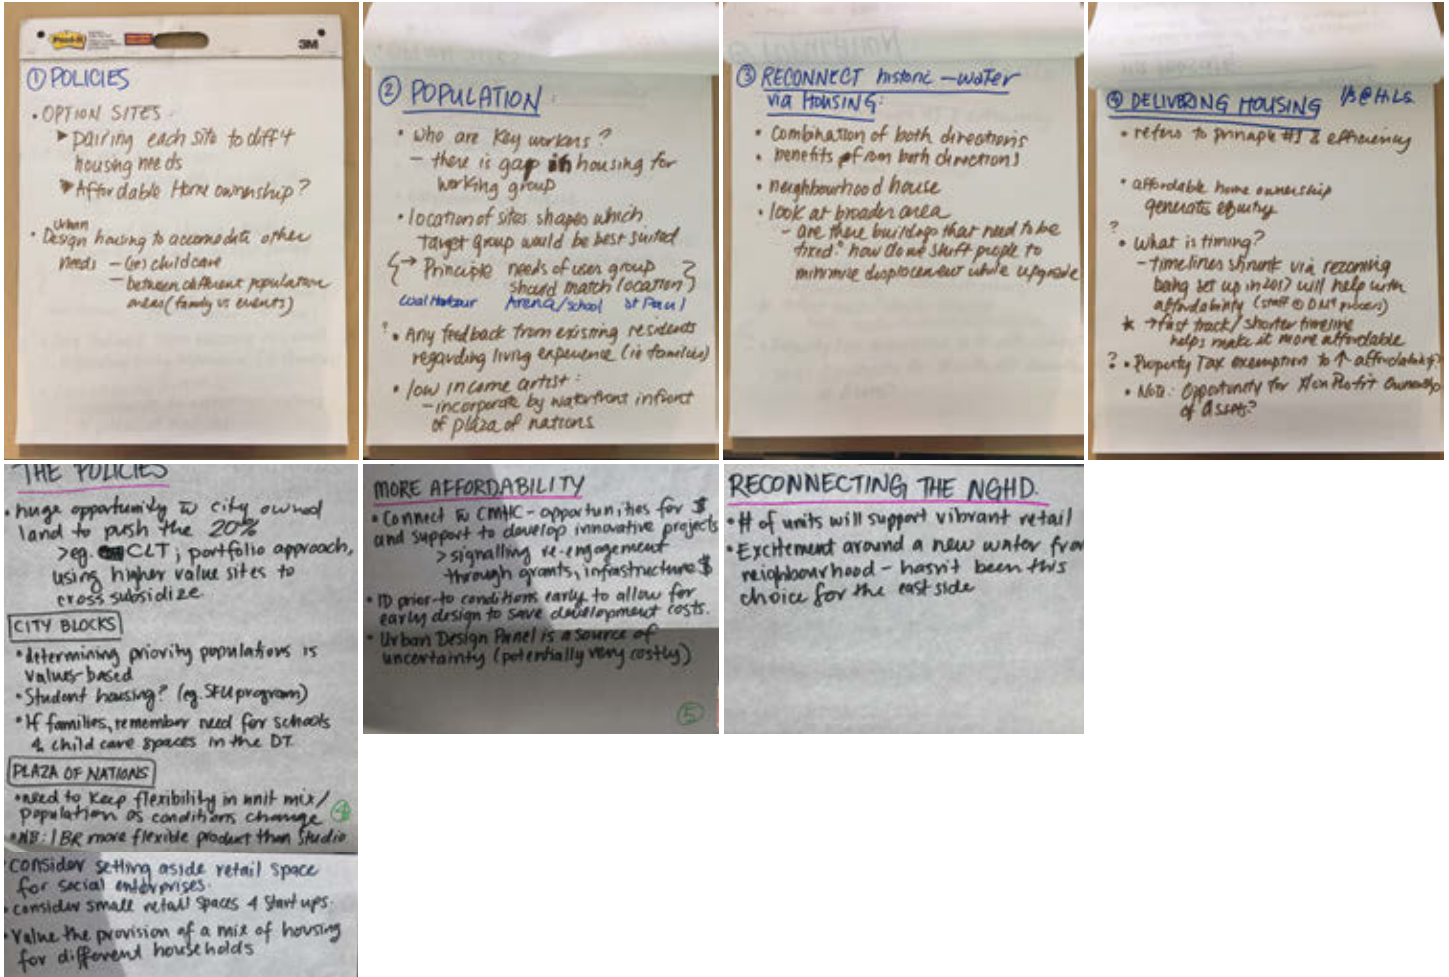 Post-it
3M
① POLICIES
• OPTION SITES
➤ pairing each site to diff't
housing needs
➤ Affordable Home ownership?
Urban
• Design housing to accomodate other
needs – (ie) childcare
– between different population
areas (family vs events)
② POPULATION
• who are Key workers?
– there is gap in housing for
working group
• location of sites shapes which
Target group would be best suited
{→ Principle needs of user group
should match location}
Coal Harbour Arena/School St Paul
? • Any feedback from existing residents
regarding living experience (ie families)
• low income artist:
– incorporate by waterfront infront
of plaza of nations
③ RECONNECT historic – water
via HOUSING:
• combination of both directions
• benefits from both directions
• neighbourhood house
• look at broader area
– are there buildings that need to be
fixed? how do we shift people to
minimise displacement while upgrade
④ DELIVERING HOUSING
• refers to principle #1 & efficiency
• affordable home ownership
generates equity
?
• What is timing?
– timelines shrunk via rezoning
being set up in 2017 will help with
affordability (staff process)
* → fast track/shorter timeline
helps make it more affordable
? • Property Tax exemption to ↑ affordability?
• Note: Opportunity for Non Profit Ownership
of assets?
THE POLICIES
• huge opportunity w city owned
land to push the 20%
> eg. CLT; portfolio approach,
using higher value sites to
cross subsidize
CITY BLOCKS
• determining priority populations is
values-based
• Student housing? (eg. SFU program)
• If families, remember need for schools
& child care spaces in the DT
PLAZA OF NATIONS
• need to keep flexibility in unit mix/
population as conditions change
④
• NB: 1 BR more flexible product than Studio
consider setting aside retail space
for social enterprises.
• consider small retail spaces 4 start ups.
• Value the provision of a mix of housing
for different households
MORE AFFORDABILITY
• Connect w CMHC – opportunities for $
and support to develop innovative projects
> signalling re-engagement
through grants, infrastructure $
• ID prior-to conditions early to allow for
early design to save development costs.
• Urban Design Panel is a source of
uncertainty (potentially very costly)
⑤
RECONNECTING THE NGHD.
• # of units will support vibrant retail
• Excitement around a new water fron
neighbourhood – hasn't been this
choice for the east side